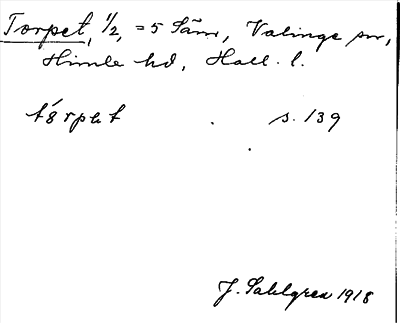 Torpet, 1/2, = 5 Säm, Valinge sn,
Himle hd, Hall. l.
tórpet s. 139
J. Sahlgren 1918